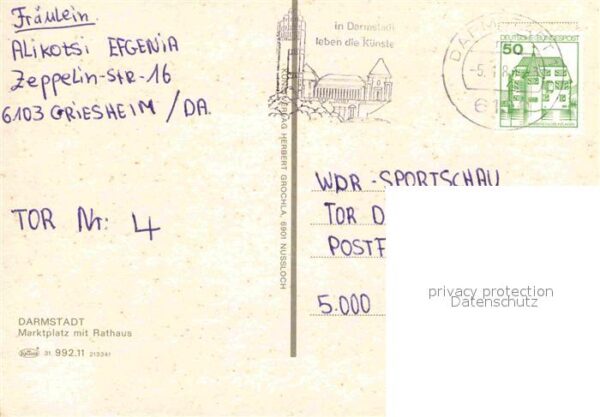 Fräulein.
ALIKOTSI EFGENIA
Zeppelin-Str-16
6103 GRIESHEIM / DA.
TOR Nr: 4
DARMSTADT
Marktplatz mit Rathaus
31. 992.11 213341
VERLAG HERBERT GROCHLA, 6901 NUSSLOCH
in Darmstadt
leben die Künste
DARMSTADT
-5.
61
DEUTSCHE BUNDESPOST
50
WDR-SPORTSCHAU
TOR D
POSTF
5.000
privacy protection
Datenschutz